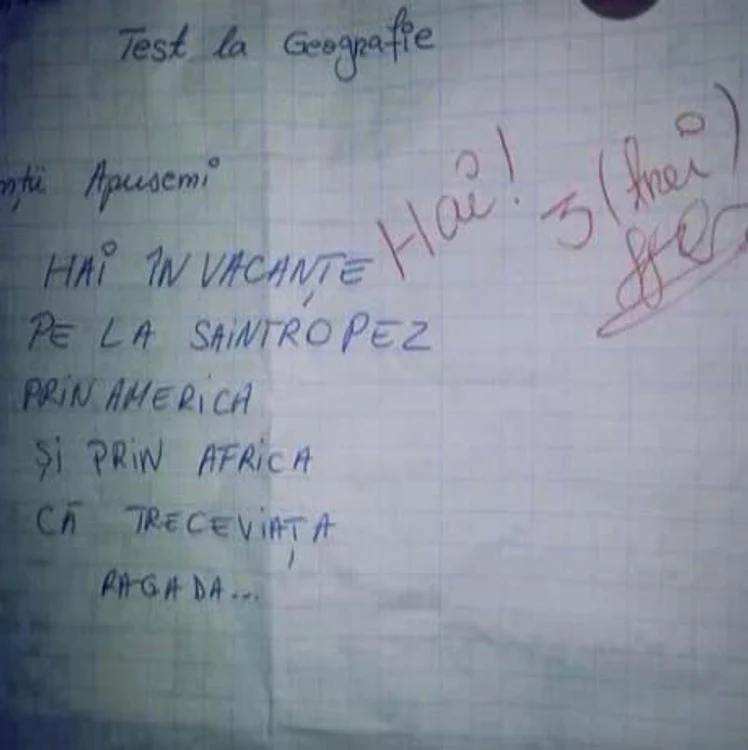 Test la Geografie
nții Apuseni
HAI ÎN VACANȚE
Hai!
3 (trei)
PE LA SAINTROPEZ
PRIN AMERICA
ȘI PRIN AFRICA
CĂ TRECEVIAȚA
RAGADA...